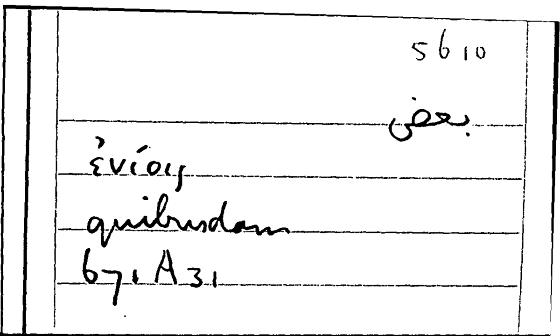 5610
بعض
ἐνίοις
quibusdam
671 A 31